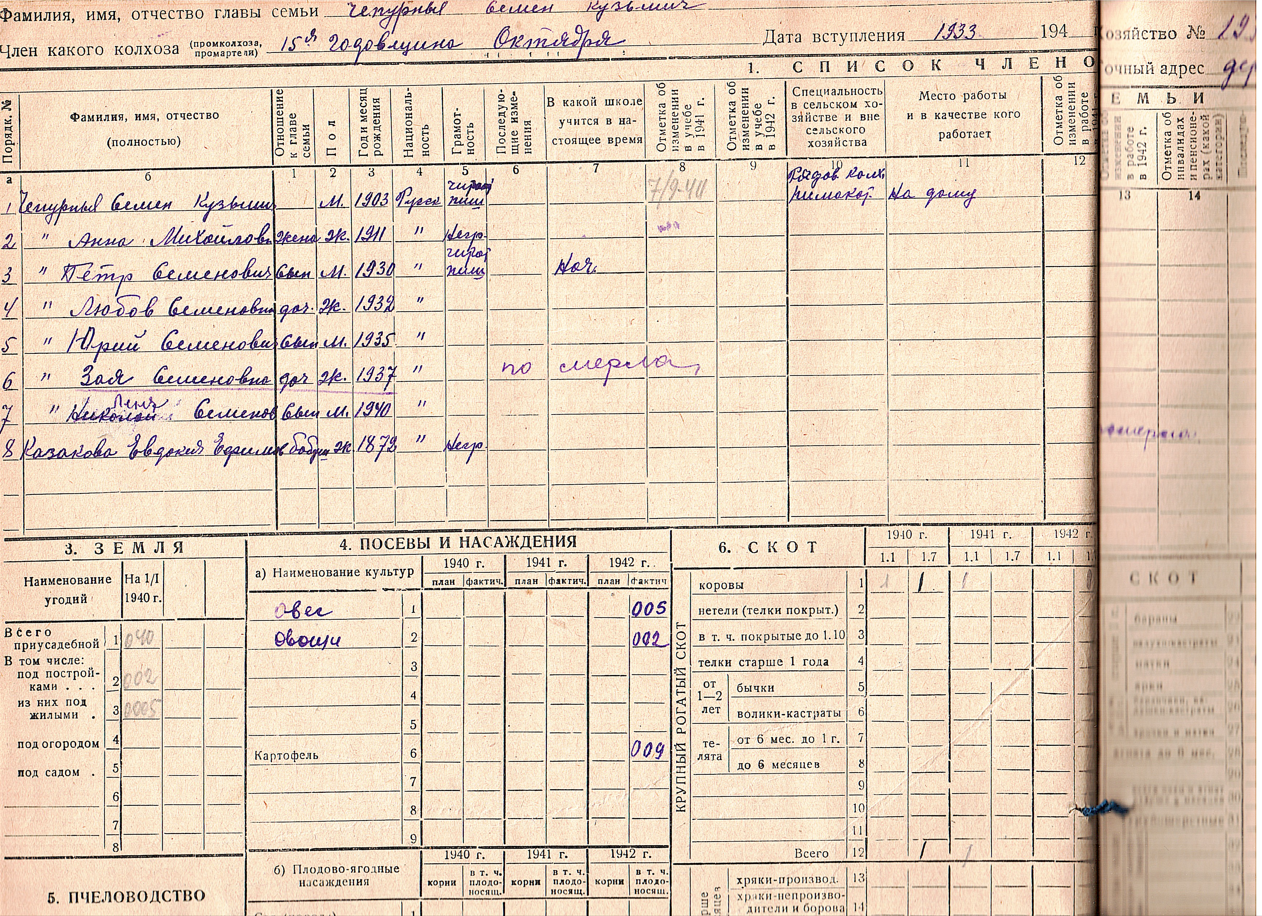 Фамилия, имя, отчество главы семьи Чепурных Семен Кузьмич
Член какого колхоза (промколхоза, промартели) 15я годовщина Октября Дата вступления 1933 194
Хозяйство №
1. СПИСОК ЧЛЕНО
ЕМЬИ
Порядк. №
Фамилия, имя, отчество (полностью)
Отношение к главе семьи
Пол
Год и месяц рождения
Националь-ность
Грамот-ность
Последую-щие изме-нения
В какой школе учится в на-стоящее время
Отметка об изменении в учебе в 1941 г.
Отметка об изменении в учебе в 1942 г.
Специальность в сельском хо-зяйстве и вне сельского хозяйства
Место работы и в качестве кого работает
Отметка об изменении в работе
в работе в 1942 г.
Отметка об инвалидах и пенсионе-рах (какой категории)
а б 1 2 3 4 5 6 7 8 9 10 11 12 13 14
1 Семен Кузьмич м. 1903 Русск На дому
2 " Анна Михайловн жена ж. 1911 " Негр.
3 " Петр Семенович сын м. 1930 " Нач.
4 " Любов Семеновна доч. ж. 1932 "
5 " Юрий Семенови сын м. 1935 "
6 " Зоя Семеновна доч ж. 1937 " по мерла
7 " Николай Леня Семенов сын м. 1940 "
8 Казакова Евдокия Ефимов бабуш ж 1872 " Негр.
3. ЗЕМЛЯ
Наименование угодий На 1/I 1940 г.
Всего приусадебной 1 040
В том числе:
под построй-ками . . . 2 002
из них под жилыми . 3 0005
под огородом 4
под садом . 5
6
7
8
5. ПЧЕЛОВОДСТВО
4. ПОСЕВЫ И НАСАЖДЕНИЯ
а) Наименование культур 1940 г. 1941 г. 1942 г.
план фактич. план фактич. план фактич
овес 1 005
овощи 2 002
3
4
5
Картофель 6 009
7
8
9
б) Плодово-ягодные насаждения 1940 г. 1941 г. 1942 г.
корни в т. ч. плодо-носящ. корни в т. ч. плодо-носящ. корни в т. ч. плодо-носящ.
6. СКОТ 1940 г. 1941 г. 1942 г.
1.1 1.7 1.1 1.7 1.1
КРУПНЫЙ РОГАТЫЙ СКОТ
коровы 1 1 1 1
нетели (телки покрыт.) 2
в т. ч. покрытые до 1.10 3
телки старше 1 года 4
от 1—2 лет бычки 5
волики-кастраты 6
те-лята от 6 мес. до 1 г. 7
до 6 месяцев 8
9
10
11
Всего 12 1 1
хряки-производ. 13
хряки-непроизво-дители и борова 14
СКОТ
бараны
матки
ярки